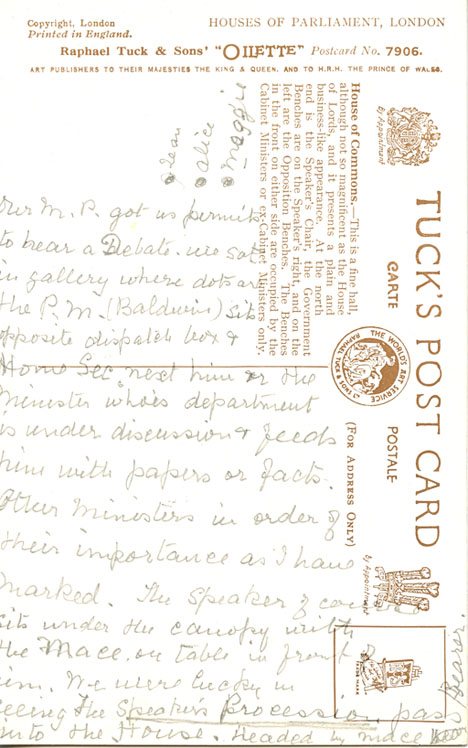 Copyright, London
Printed in England.
HOUSES OF PARLIAMENT, LONDON
Raphael Tuck & Sons' "OILETTE" Postcard No. 7906.
ART PUBLISHERS TO THEIR MAJESTIES THE KING & QUEEN, AND TO H.R.H. THE PRINCE OF WALES.
House of Commons.—This is a fine hall,
although not so magnificent as the House
of Lords, and it presents a plain and
business-like appearance. At the north
end is the Speaker's Chair, the Government
Benches are on the Speaker's right, and on the
left are the Opposition Benches. The Benches
in the front on either side are occupied by the
Cabinet Ministers or ex-Cabinet Ministers only.
By Appointment
TUCK'S POST CARD
CARTE POSTALE
THE WORLD'S ART SERVICE
RAPHAEL TUCK & SONS LTD
(FOR ADDRESS ONLY)
By Appointment
TRADE MARK
Jean
Alice
Maggie
Our M.P. got us permits
to hear a Debate. We sat
in gallery where dots are
the P.M. (Baldwin) sits
opposite dispatch box &
Home Sec. next him or the
Minister who's department
is under discussion & feeds
him with papers or facts.
Other Ministers in order of
their importance as I have
marked. The Speaker of
sits under the canopy with
the Mace on table in front of
him. We were lucky in
seeing the Speaker's Procession pass
into the House. Headed in mace
Bearer.